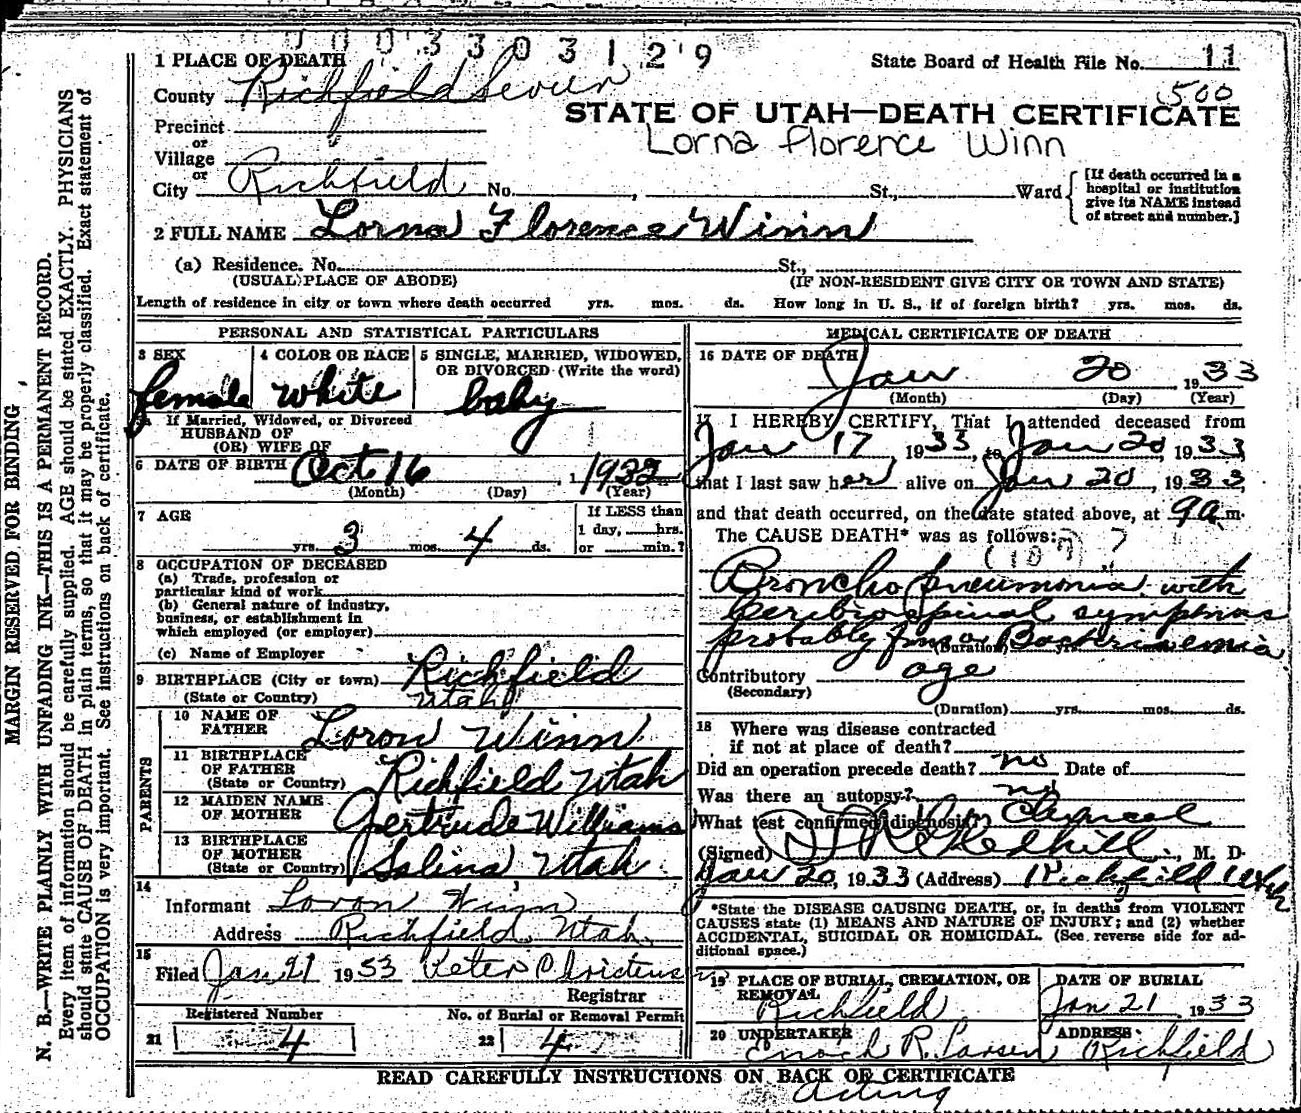 0 0 3 3 0 3 1 2 9
1 PLACE OF DEATH
State Board of Health File No. 11
County Richfield Sevier
500
STATE OF UTAH—DEATH CERTIFICATE
Precinct
Lorna Florence Winn
or
Village
or
City Richfield No. , St., Ward
[If death occurred in a hospital or institution give its NAME instead of street and number.]
2 FULL NAME Lorna Florence Winn
(a) Residence. No. St.,
(USUAL PLACE OF ABODE) (IF NON-RESIDENT GIVE CITY OR TOWN AND STATE)
Length of residence in city or town where death occurred yrs. mos. ds. How long in U. S., if of foreign birth? yrs. mos. ds.
PERSONAL AND STATISTICAL PARTICULARS
3 SEX 4 COLOR OR RACE 5 SINGLE, MARRIED, WIDOWED,
OR DIVORCED (Write the word)
female white baby
If Married, Widowed, or Divorced
HUSBAND OF
(OR) WIFE OF
6 DATE OF BIRTH Oct 16, 1932
(Month) (Day) (Year)
7 AGE
If LESS than
1 day, hrs.
yrs. 3 mos. 4 ds. or min.?
8 OCCUPATION OF DECEASED
(a) Trade, profession or
particular kind of work
(b) General nature of industry,
business, or establishment in
which employed (or employer)
(c) Name of Employer
9 BIRTHPLACE (City or town) Richfield
(State or Country) Utah
PARENTS
10 NAME OF
FATHER Loron Winn
11 BIRTHPLACE
OF FATHER
(State or Country) Richfield Utah
12 MAIDEN NAME
OF MOTHER Gertrude Williams
13 BIRTHPLACE
OF MOTHER
(State or Country) Salina Utah
14
Informant Loron Winn
Address Richfield, Utah.
15
Filed Jan 21 1933 Peter Christens
Registrar
Registered Number No. of Burial or Removal Permit
21 4 22 4
MEDICAL CERTIFICATE OF DEATH
16 DATE OF DEATH
Jan 20, 1933
(Month) (Day) (Year)
17 I HEREBY CERTIFY, That I attended deceased from
Jan 17, 1933, to Jan 20, 1933,
that I last saw her alive on Jan 20, 1933,
and that death occurred, on the date stated above, at 9 a m.
The CAUSE DEATH* was as follows:
(107) ?
Broncho pneumonia with
Cerebrospinal symptoms
probably from Bacteriemia
(Duration) yrs. mos.
Contributory age
(Secondary)
(Duration) yrs. mos. ds.
18 Where was disease contracted
if not at place of death?
Did an operation precede death? no Date of
Was there an autopsy? no
What test confirmed diagnosis? Clinical
(Signed) , M. D.
Jan 20, 1933 (Address) Richfield Utah
*State the DISEASE CAUSING DEATH, or, in deaths from VIOLENT
CAUSES state (1) MEANS AND NATURE OF INJURY; and (2) whether
ACCIDENTAL, SUICIDAL OR HOMICIDAL. (See reverse side for ad-
ditional space.)
19 PLACE OF BURIAL, CREMATION, OR
REMOVAL
DATE OF BURIAL
Richfield Jan 21 1933
20 UNDERTAKER ADDRESS
Enoch R. Larsen Richfield
READ CAREFULLY INSTRUCTIONS ON BACK OF CERTIFICATE
acting
MARGIN RESERVED FOR BINDING
N. B.—WRITE PLAINLY WITH UNFADING INK—THIS IS A PERMANENT RECORD.
Every item of information should be carefully supplied. AGE should be stated EXACTLY. PHYSICIANS
should state CAUSE OF DEATH in plain terms, so that it may be properly classified. Exact statement of
OCCUPATION is very important. See instructions on back of certificate.